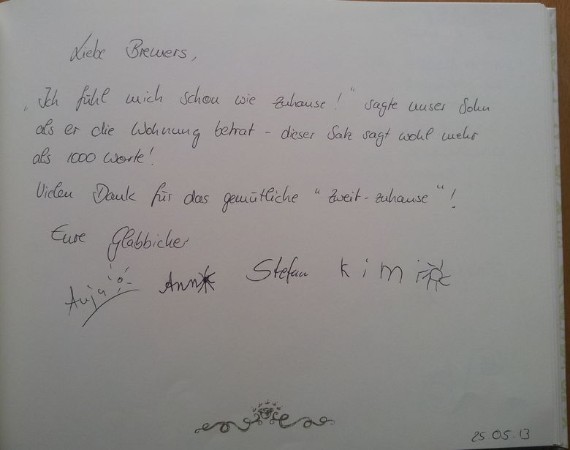 Liebe Brewers,
„Ich fühl mich schon wie zuhause!" sagte unser Sohn
als er die Wohnung betrat - dieser Satz sagt wohl mehr
als 1000 Worte!
Vielen Dank für das gemütliche "Zweit-zuhause"!
Eure Glabbicher
Anja Anna Stefan Kimi
25.05.13